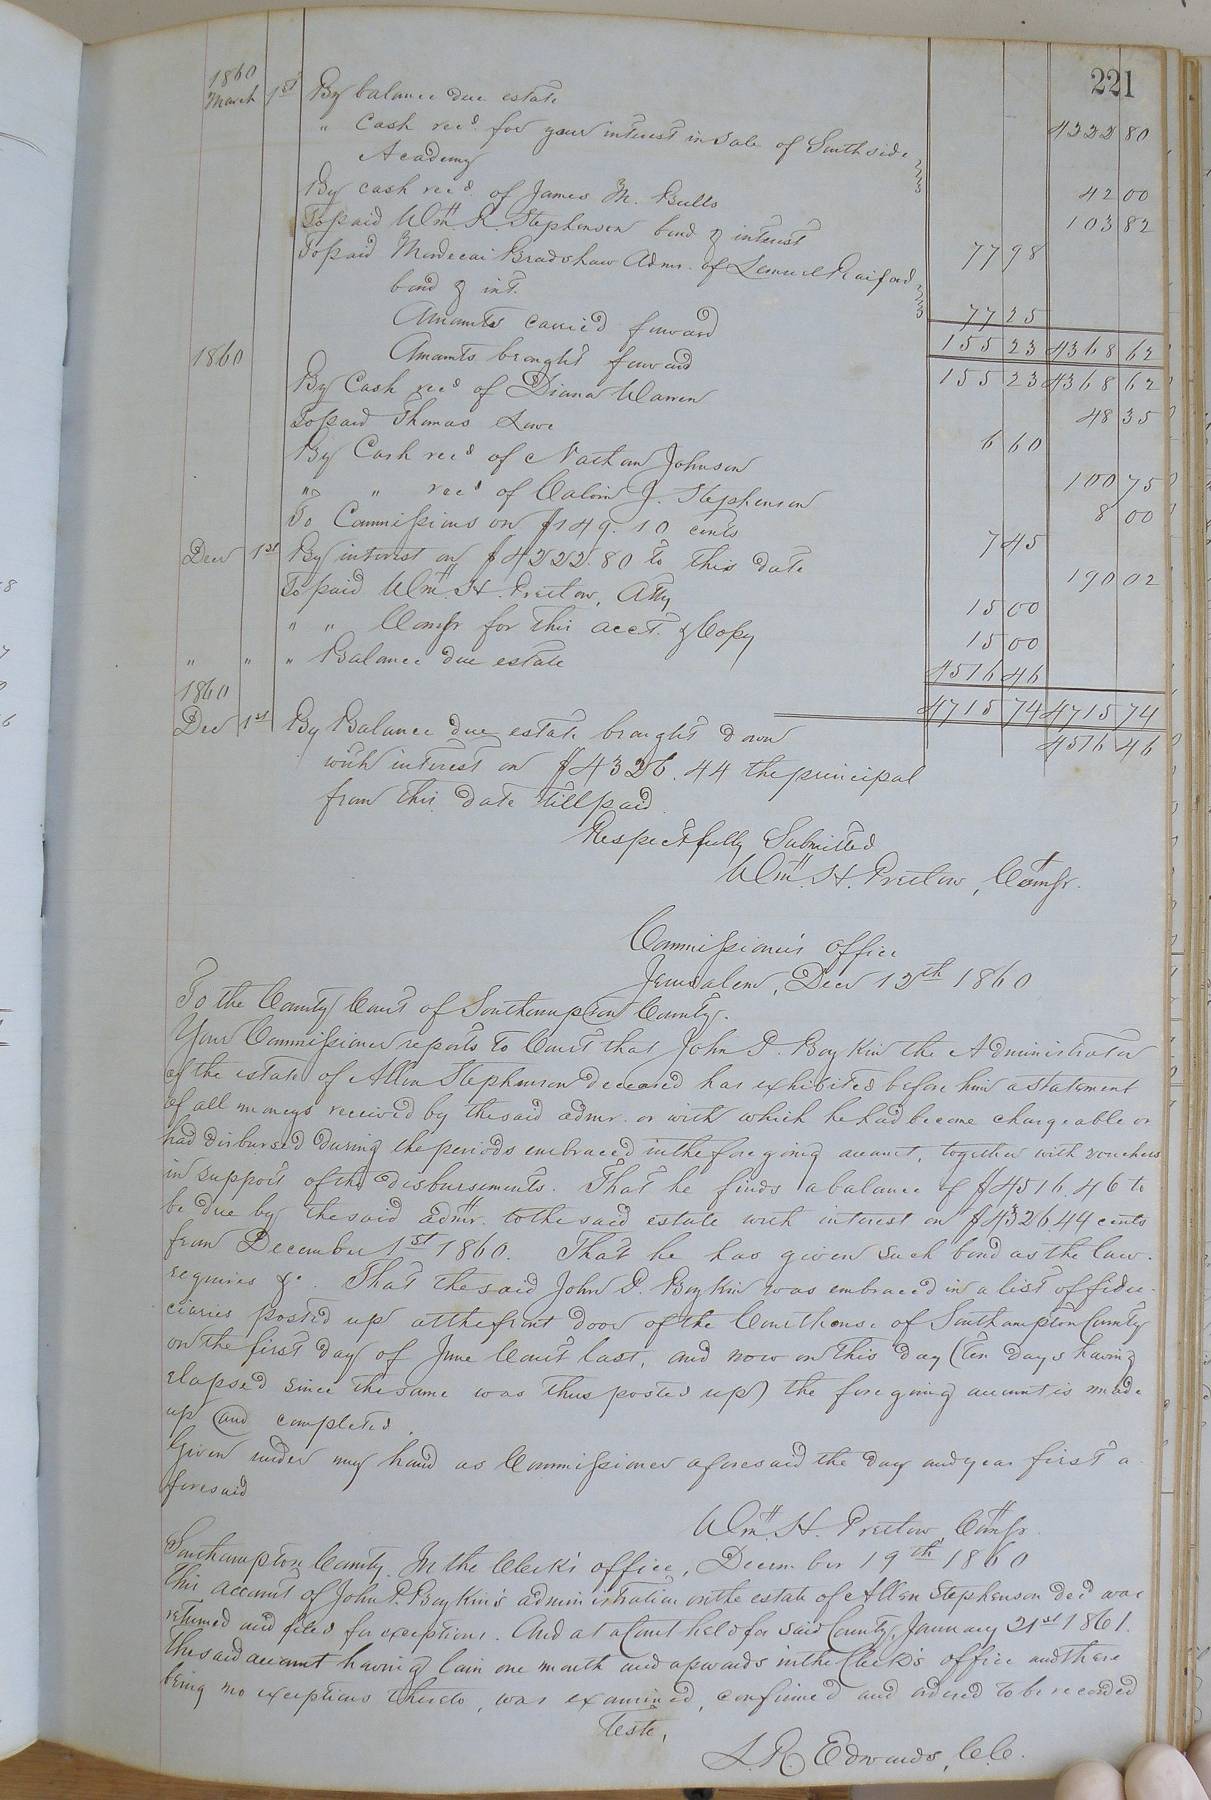 221
1860
March 1st By balance due estate 4222 80
" Cash recd for your interest in sale of Southside
Academy 42 00
By cash recd of James M. Bells 103 82
To paid Wm. R. Stephenson bond & interest 77 98
To paid Mordecai Bradshaw Admr. of Lemuel Raiford
bond & int. 77 25
Amounts carried forward 155 23 4368 62
1860 Amounts brought forward 155 23 4368 62
By Cash recd of Diana Warren 48 35
To paid Thomas Lowe 6 60
By Cash recd of Nathan Johnson 100 75
" " recd of Calvin J. Stephenson 8 00
To Commissions on $149.10 cents 7 45
Decr 1st By interest on $4222.80 to this date 190 02
To paid Wm. H. Preston, Atty 15 00
" " Comsr for this acct. & Copy 15 00
" " " Balance due estate 4516 46
1860 4715 74 4715 74
Dec 1st By Balance due estate brought down 4516 46
with interest on $4326.44 the principal
from this date till paid
Respectfully Submitted
Wm. H. Preston, Comsr.
Commissioner's office
Jerusalem, Decr 12th 1860
To the County Court of Southampton County.
Your Commissioner reports to Court that John P. Boykin the Administrator
of the estate of Allen Stephenson deceased has exhibited before him a statement
of all moneys received by the said admr. or with which he had become chargeable or
had disbursed during the periods embraced in the foregoing account, together with vouchers
in support of the disbursements. That he finds a balance of $4516.46 to
be due by the said admr. to the said estate with interest on $4326 44 cents
from December 1st 1860. That he has given such bond as the law
requires &c. That the said John P. Boykin was embraced in a list of fidu-
ciaries posted up at the front door of the Courthouse of Southampton County
on the first day of June Court last, and now on this day (ten days having
elapsed since the same was thus posted up) the foregoing account is made
up and completed.
Given under my hand as Commissioner aforesaid the day and year first a
foresaid
Wm. H. Preston Comsr.
Southampton County. In the Clerk's office, December 19th 1860
This account of John P. Boykin's administration on the estate of Allen Stephenson decd was
returned and filed for exceptions. And at a Court held for said County, January 21st 1861.
the said account having lain one month and upwards in the Clerk's office and there
being no exceptions thereto, was examined, confirmed and ordered to be recorded
Teste,
L. R. Edwards, C.C.